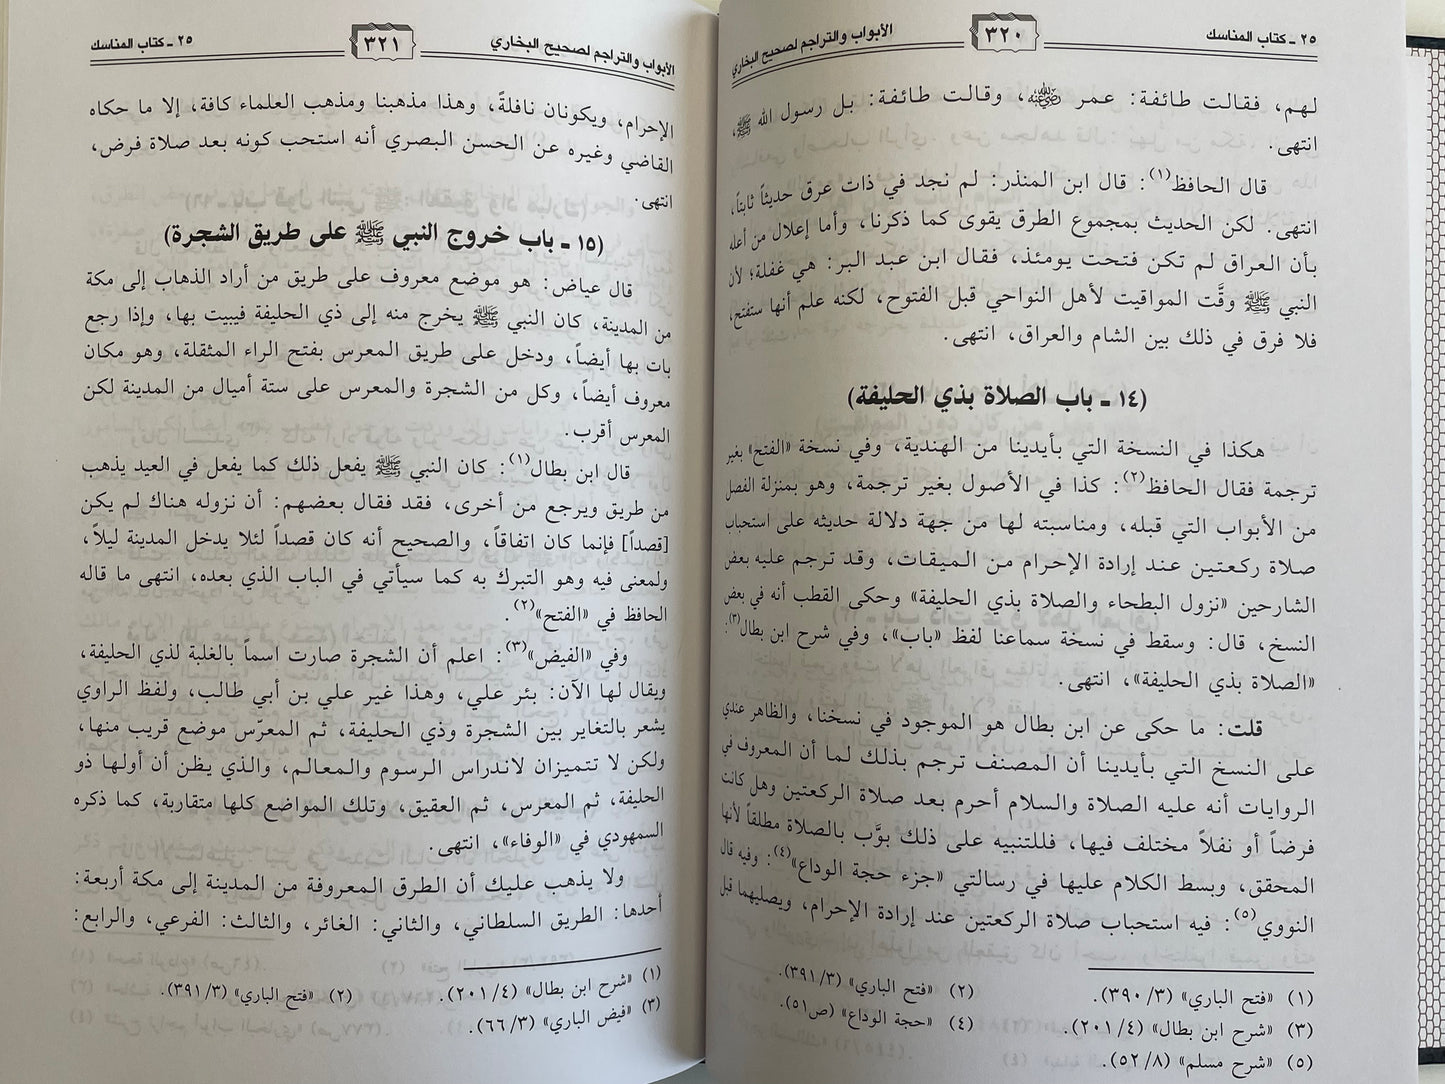 ٢٥ ـ كتاب المناسك
٣٢٠
الأبواب والتراجم لصحيح البخاري
لهم، فقالت طائفة: عمر رضي الله عنه، وقالت طائفة: بل رسول الله ﷺ،
انتهى.
قال الحافظ(١): قال ابن المنذر: لم نجد في ذات عرق حديثاً ثابتاً،
انتهى. لكن الحديث بمجموع الطرق يقوى كما ذكرنا، وأما إعلال من أعله
بأن العراق لم تكن فتحت يومئذ، فقال ابن عبد البر: هي غفلة؛ لأن
النبي ﷺ وقَّت المواقيت لأهل النواحي قبل الفتوح، لكنه علم أنها ستفتح،
فلا فرق في ذلك بين الشام والعراق، انتهى.
(١٤ ـ باب الصلاة بذي الحليفة)
هكذا في النسخة التي بأيدينا من الهندية، وفي نسخة «الفتح» بغير
ترجمة فقال الحافظ(٢): كذا في الأصول بغير ترجمة، وهو بمنزلة الفصل
من الأبواب التي قبله، ومناسبته لها من جهة دلالة حديثه على استحباب
صلاة ركعتين عند إرادة الإحرام من الميقات، وقد ترجم عليه بعض
الشارحين «نزول البطحاء والصلاة بذي الحليفة» وحكى القطب أنه في بعض
النسخ، قال: وسقط في نسخة سماعنا لفظ «باب»، وفي شرح ابن بطال(٣):
«الصلاة بذي الحليفة»، انتهى.
قلت: ما حكى عن ابن بطال هو الموجود في نسخنا، والظاهر عندي
على النسخ التي بأيدينا أن المصنف ترجم بذلك لما أن المعروف في
الروايات أنه عليه الصلاة والسلام أحرم بعد صلاة الركعتين وهل كانت
فرضاً أو نفلاً مختلف فيها، فللتنبيه على ذلك بوَّب بالصلاة مطلقاً لأنها
المحقق، وبسط الكلام عليها في رسالتي «جزء حجة الوداع»(٤): وفيه قال
النووي(٥): فيه استحباب صلاة الركعتين عند إرادة الإحرام، ويصليهما قبل
(١) «فتح الباري» (٣/ ٣٩٠).
(٢) «فتح الباري» (٣/ ٣٩١).
(٣) «شرح ابن بطال» (٤/ ٢٠١).
(٤) «حجة الوداع» (ص٥١).
(٥) «شرح مسلم» (٨/ ٥٢).
الأبواب والتراجم لصحيح البخاري
٣٢١
٢٥ ـ كتاب المناسك
الإحرام، ويكونان نافلةً، وهذا مذهبنا ومذهب العلماء كافة، إلا ما حكاه
القاضي وغيره عن الحسن البصري أنه استحب كونه بعد صلاة فرض،
انتهى.
(١٥ ـ باب خروج النبي ﷺ على طريق الشجرة)
قال عياض: هو موضع معروف على طريق من أراد الذهاب إلى مكة
من المدينة، كان النبي ﷺ يخرج منه إلى ذي الحليفة فيبيت بها، وإذا رجع
بات بها أيضاً، ودخل على طريق المعرس بفتح الراء المثقلة، وهو مكان
معروف أيضاً، وكل من الشجرة والمعرس على ستة أميال من المدينة لكن
المعرس أقرب.
قال ابن بطال(١): كان النبي ﷺ يفعل ذلك كما يفعل في العيد يذهب
من طريق ويرجع من أخرى، فقد فقال بعضهم: أن نزوله هناك لم يكن
[قصداً] فإنما كان اتفاقاً، والصحيح أنه كان قصداً لئلا يدخل المدينة ليلاً،
ولمعنى فيه وهو التبرك به كما سيأتي في الباب الذي بعده، انتهى ما قاله
الحافظ في «الفتح»(٢).
وفي «الفيض»(٣): اعلم أن الشجرة صارت اسماً بالغلبة لذي الحليفة،
ويقال لها الآن: بئر علي، وهذا غير علي بن أبي طالب، ولفظ الراوي
يشعر بالتغاير بين الشجرة وذي الحليفة، ثم المعرّس موضع قريب منها،
ولكن لا تتميزان لاندراس الرسوم والمعالم، والذي يظن أن أولها ذو
الحليفة، ثم المعرس، ثم العقيق، وتلك المواضع كلها متقاربة، كما ذكره
السمهودي في «الوفاء»، انتهى.
ولا يذهب عليك أن الطرق المعروفة من المدينة إلى مكة أربعة:
أحدها: الطريق السلطاني، والثاني: الغائر، والثالث: الفرعي، والرابع:
(١) «شرح ابن بطال» (٤/ ٢٠١).
(٢) «فتح الباري» (٣/ ٣٩١).
(٣) «فيض الباري» (٣/ ٦٦).